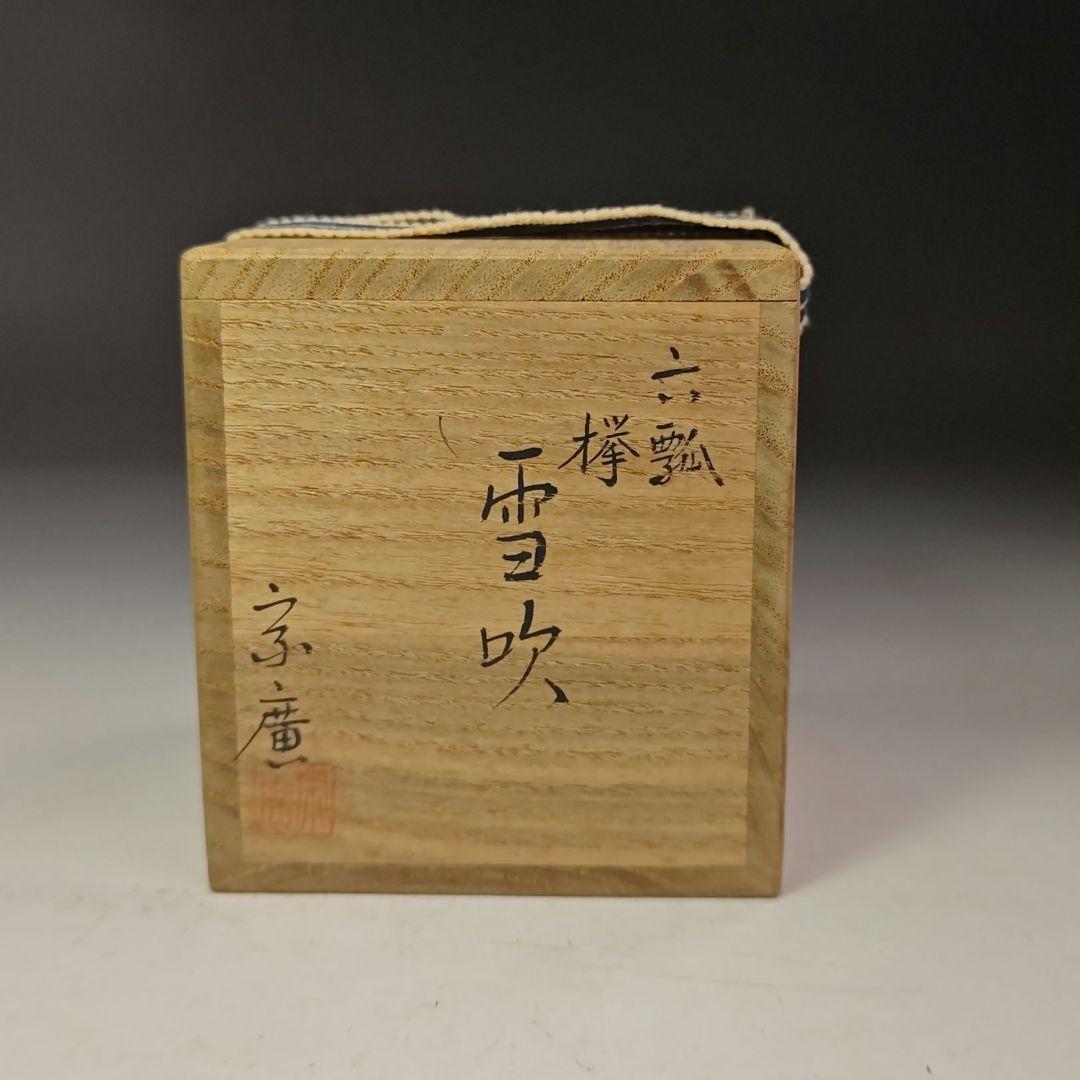 六瓢
欅
雪吹
宗廣